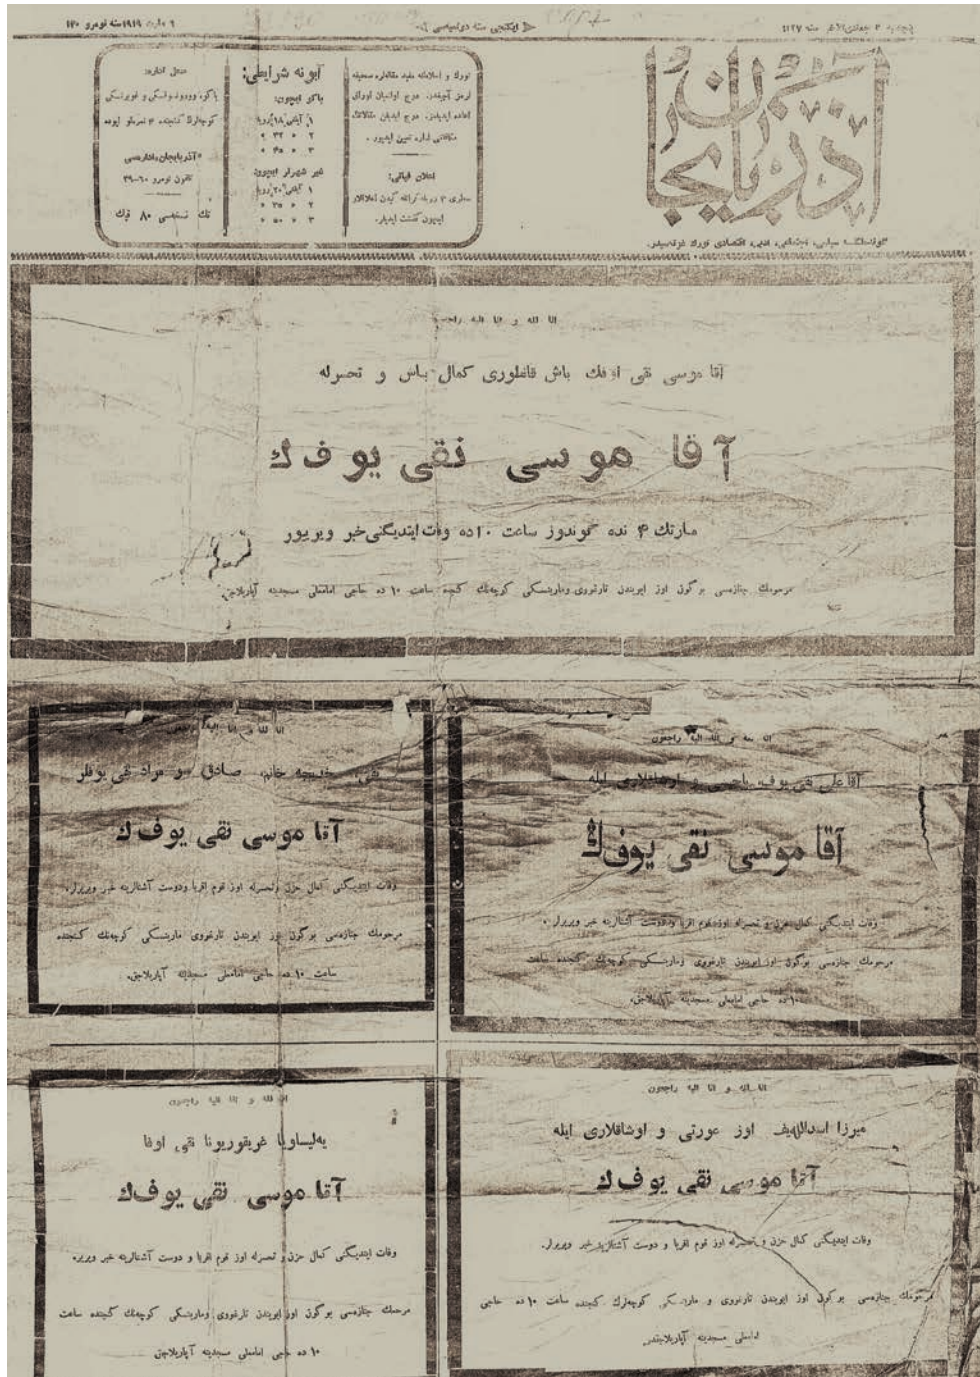 ٦ مارت ١٩١٩ سنه نومرو ١٢٠
ایکنجی سنه دوامیسی
پنجشنبه ٣ جمادی الاخر سنه ١٣٣٧
آذربایجان
گونده‌لك سیاسی، اجتماعی، ادبی، اقتصادی تورك غزته‌سیدر.
تورك و اسلامه مفید مقاله‌لره صحیفه
لرمز آچیقدر. درج اولنمیان اوراق
اعاده ایدیلمز. درج ایدیلن مقالاتك
مكافاتی اداره تعیین ایدییور.
اعلان قیاتی:
ایچون گذشت ایدیلر.
آبونه شرایطی:
باکو ایچون:
١ آیلقی ١٨ روبل
٢ » ٣٣ »
٣ » ٤٥ »
غیر شهرلر ایچون:
١ آیلقی ٢٠ روبل
٢ » ٣٥ »
٣ » ٥٠ »
محل اداره:
باکو، وورونسوفسکی و غوبرنسکی
«آذربایجان» اداره‌سی
تلفون نومرو ٦٠—٣٩
تك نسخه‌سی ٨٠ قپك
انا لله و انا الیه راجعون
آقا موسی نقی اوفك باش قانطوری کمال یأس و تحسرله
آقا موسی نقی یوفك
مارتك ۴ نده گوندوز ساعت ١٠ده وفات ایتدیگنی خبر ویریور
مرحومك جنازه‌سی بو گون اوز ایویندن تارغووی ومارینسکی کوچه‌نك کنجنده ساعت ١٠ ده حاجی امامعلی مسجدینه آپاریلاجق.
انا لله و انا الیه راجعون
آقا علی نقی یوف، باجیسی و اوشاقلاری ایله
آقا موسی نقی یوفك
وفات ایتدیگنی کمال حزن و تحسرله اوز قوم اقربا ودوست آشنالرینه خبر ویریرلر.
مرحومك جنازه‌سی بو گون اوز ایویندن تارغووی ومارینسکی کوچه‌نك کنجنده ساعت
١٠ ده حاجی امامعلی مسجدینه آپاریلاجق.
انا لله و انا الیه راجعون
خدیجه خانم، صادق و مراد نقی یوفلر
آقا موسی نقی یوفك
وفات ایتدیگنی کمال حزن وتحسرله اوز قوم اقربا ودوست آشنالرینه خبر ویریرلر.
مرحومك جنازه‌سی بو گون اوز ایویندن تارغووی مارینسکی کوچه‌نك کنجنده
ساعت ١٠ ده حاجی امامعلی مسجدینه آپاریلاجق.
انا لله و انا الیه راجعون
میرزا اسدالله‌یف اوز عورتی و اوشاقلاری ایله
آقا موسی نقی یوفك
وفات ایتدیگنی کمال حزن و تحسرله اوز قوم اقربا و دوست آشنالرینه خبر ویریرلر.
مرحومك جنازه‌سی بو گون اوز ایویندن تارغووی و مارینسکی کوچه‌لرك کنجنده ساعت ١٠ ده حاجی
امامعلی مسجدینه آپاریلاجقدر
انا لله و انا الیه راجعون
یه‌لیساویا غریغوریونا نقی اوفا
آقا موسی نقی یوفك
وفات ایتدیگنی کمال حزن و تحسرله اوز قوم اقربا و دوست آشنالرینه خبر ویریر.
مرحمك جنازه‌سی بو گون اوز ایویندن تارغووی ومارینسکی کوچه‌نك کنجنده ساعت
١٠ ده حاجی امامعلی مسجدینه آپاریلاجق